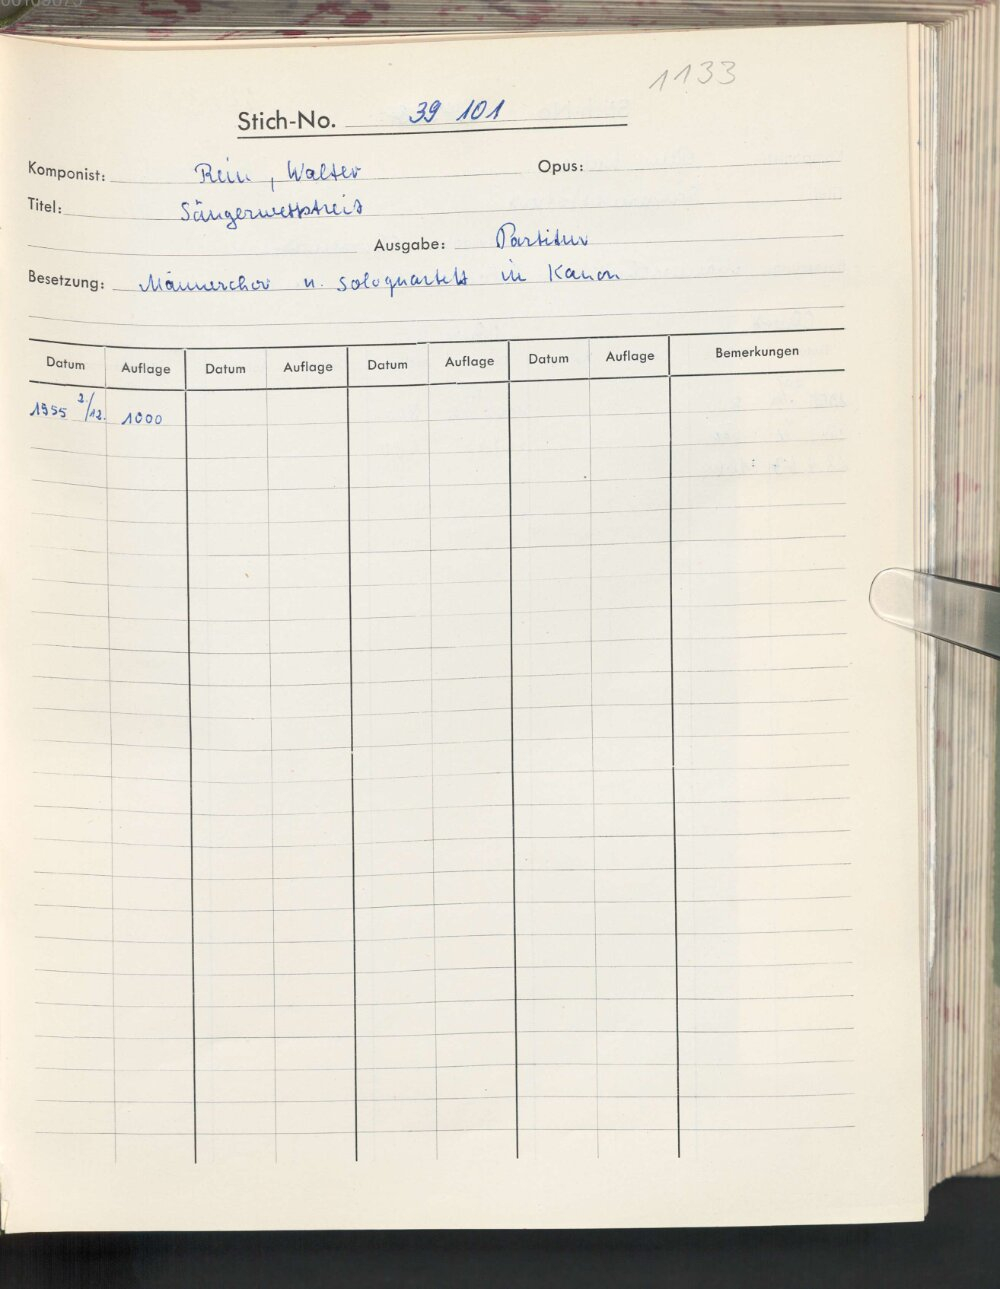 1133
Stich-No. 39 101
Komponist: Rein, Walter Opus:
Titel: Sängerwettstreit
Ausgabe: Partitur
Besetzung: Männerchor u. Soloquartett in Kanon
Datum Auflage Datum Auflage Datum Auflage Datum Auflage Bemerkungen
1955 2./12. 1000